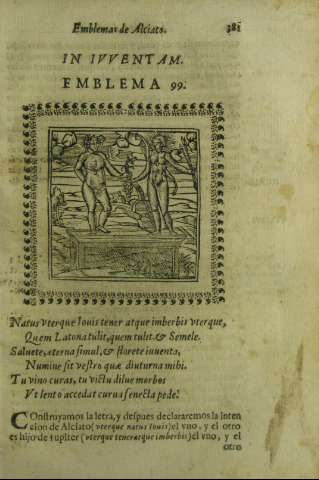 Emblemas de Alciato. 381
IN IVVENTAM.
EMBLEMA 99.
Natus vterque Iouis tener atque imberbis vterque,
Quem Latona tulit, quem tulit & Semele.
Saluete, æterna simul, & florete iuuenta,
Numine sit vestro quæ diuturna mihi.
Tu vino curas, tu victu dilue morbos
Vt lento accedat curua senecta pede.
COnstruyamos la letra, y despues declararemos la inten
cion de Alciato (vterque natus Iouis) el vno, y el otro
es hijo de Iupiter (vterque tener atque imberbis) el vno, y el
otro